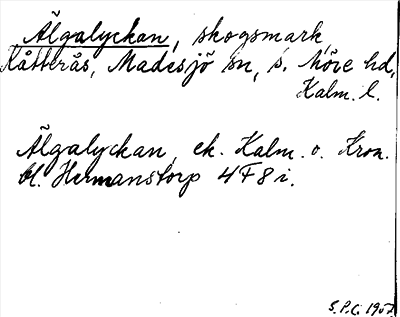 Älgalyckan, skogsmark
Kåtterås, Madesjö sn, s. Möre hd,
Kalm. l.
Älgalyckan, ek. Kalm. o. Kron.
bl. Hermanstorp 4F8i.
S.P.C. 1957.